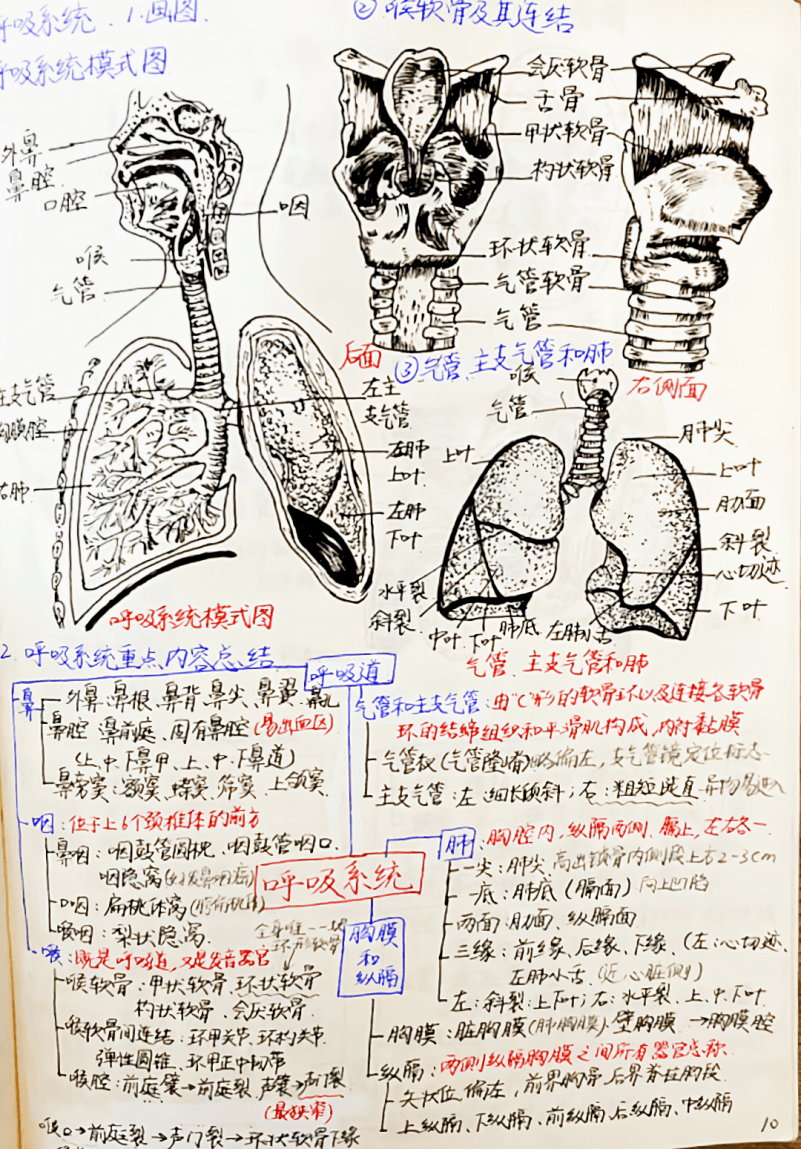 呼吸系统. 1.画图.
呼吸系统模式图
外鼻
鼻腔
口腔
咽
喉
气管
主支气管
胸膜腔
右肺
左主
支气管
左肺
上叶
左肺
下叶
呼吸系统模式图
② 喉软骨及其连结
会厌软骨
舌骨
甲状软骨
杓状软骨
环状软骨
气管软骨
气管
后面
右侧面
③气管、主支气管和肺
喉
气管
上叶
肺尖
上叶
肋面
斜裂
心切迹
下叶
水平裂
斜裂
中叶
下叶
肺底
左肺小舌
气管、主支气管和肺
2. 呼吸系统重点内容总结
呼吸道
鼻
外鼻:鼻根、鼻背、鼻尖、鼻翼、鼻孔
鼻腔:鼻前庭、固有鼻腔(易出血区)
(上、中、下鼻甲、上、中、下鼻道)
鼻旁窦:额窦、蝶窦、筛窦、上颌窦
咽:位于上6个颈椎体的前方
鼻咽:咽鼓管圆枕、咽鼓管咽口、
咽隐窝
口咽:扁桃体窝(腭扁桃体)
喉咽:梨状隐窝
喉:既是呼吸道,又是发音器官
全身唯一一块
环形软骨
喉软骨:甲状软骨、环状软骨
杓状软骨、会厌软骨
喉软骨间连结:环甲关节、环杓关节
弹性圆锥、环甲正中韧带
喉腔:前庭襞→前庭裂 声襞→声门裂
(最狭窄)
喉口→前庭裂→声门裂→环状软骨下缘
气管和主支气管:由“C”形的软骨环以及连接各软骨
环的结缔组织和平滑肌构成,内衬黏膜
气管杈(气管隆嵴)略偏左,支气管镜定位标志
主支气管:左:细长倾斜;右:粗短陡直 异物易进入
呼吸系统
肺:胸腔内,纵隔两侧、膈上,左右各一
一尖:肺尖 高出锁骨内侧段上方2-3cm
一底:肺底(膈面)向上凹陷
两面:肋面、纵隔面
三缘:前缘、后缘、下缘、(左:心切迹、
左肺小舌(近心脏侧)
左:斜裂:上下叶;右:水平裂、上、中、下叶
胸膜
和
纵隔
胸膜:脏胸膜(肺胸膜)、壁胸膜 →胸膜腔
纵隔:两侧纵隔胸膜之间所有器官总称
矢状位,偏左,前界胸骨 后界脊柱胸段
上纵隔、下纵隔、前纵隔、后纵隔、中纵隔
10